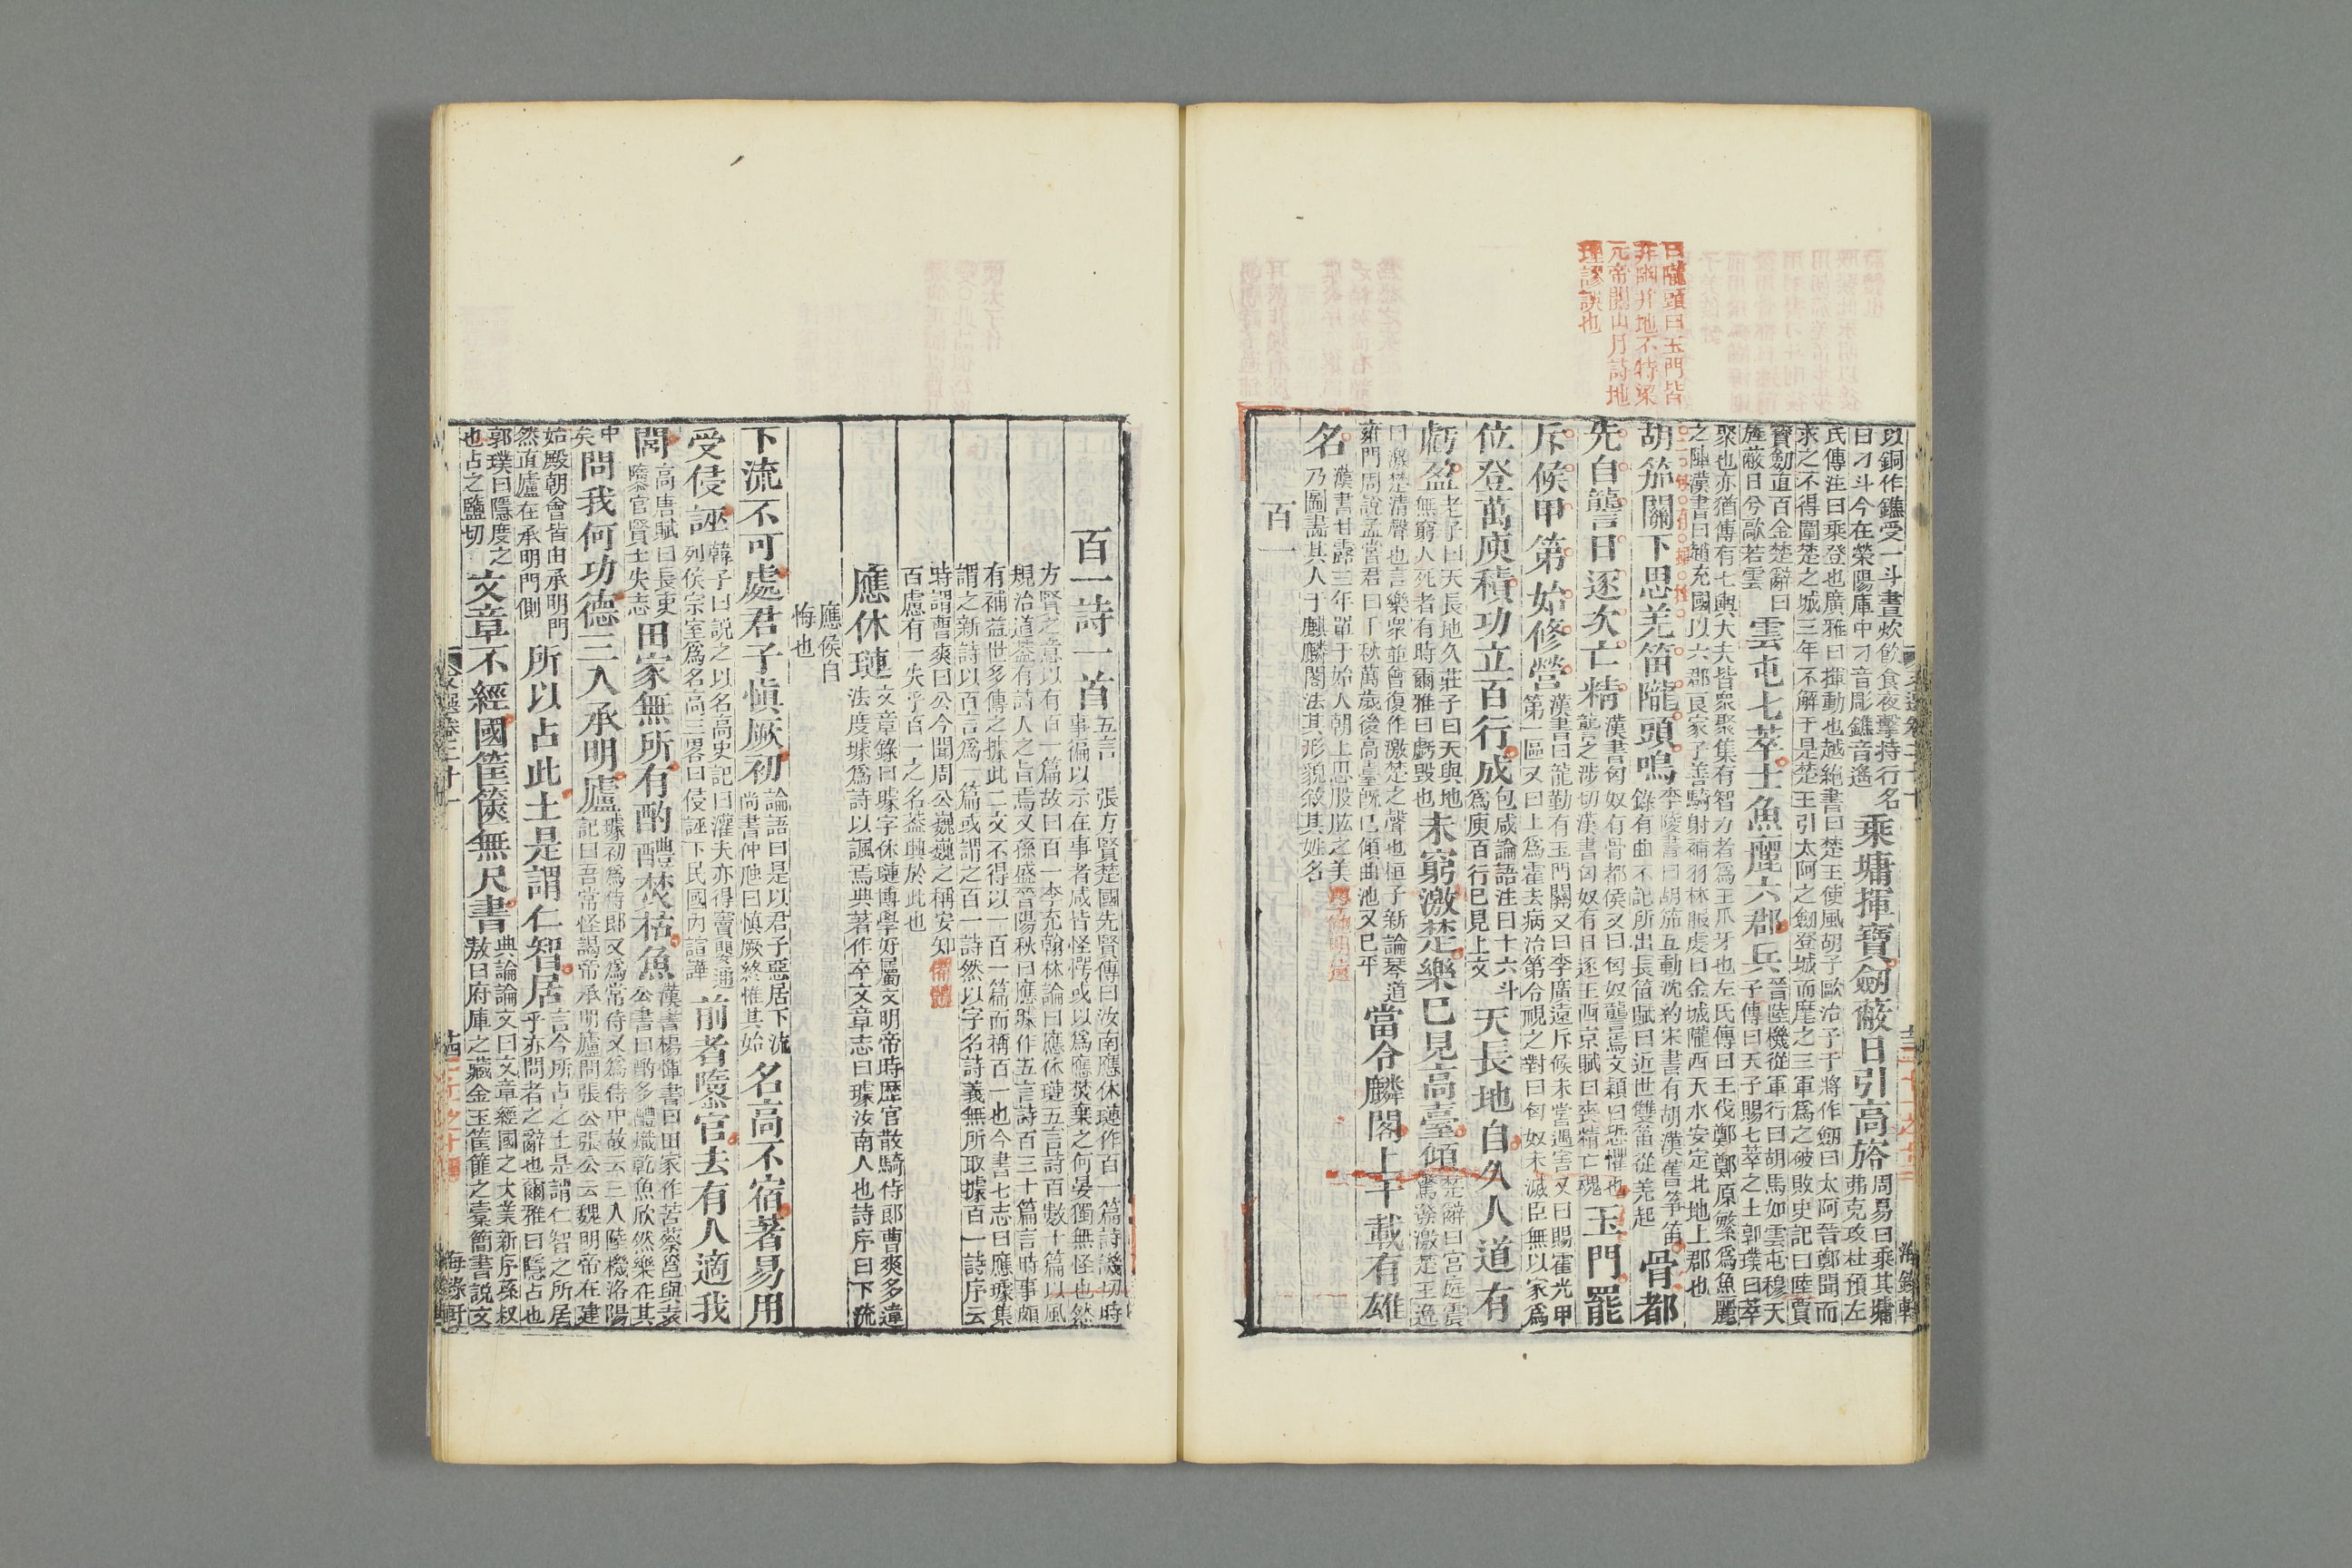 曰隴頭曰玉門皆
非幽并地不特梁
元帝關山月詩地
理謬誤也
以銅作鐎受一斗晝炊飲食夜擊持行名
曰刁斗今在滎陽庫中刁音彫鐎音遙
乘墉揮寶劒蔽日引高旍
周易曰乘其墉
弗克攻杜預左
氏傳注曰乘登也廣雅曰揮動也越絶書曰楚王使風胡子歐冶子干將作劒曰太阿晉鄭聞而
求之不得圍楚之城三年不解于是楚王引太阿之劒登城而麾之三軍爲之破敗史記曰陸賈
寶劒直百金楚辭曰
旌蔽日兮敵若雲
雲屯七萃士魚麗六郡兵
晉陸機從軍行曰胡馬如雲屯穆天
子傳曰天子賜七萃之士郭璞曰萃
聚也亦猶傳有七輿大夫皆衆聚集有智力者爲王爪牙也左氏傳曰王伐鄭鄭原繁爲魚麗
之陣漢書曰趙充國以六郡良家子善騎射補羽林服虔曰金城隴西天水安定北地上郡也
胡笳關下思羌笛隴頭鳴
李陵書曰胡笳互動沈約宋書有胡漢舊箏笛
錄有曲不記所出長笛賦曰近世雙笛從羌起
骨都
先自讋日逐次亡精
漢書匈奴有骨都侯又曰匈奴讋焉文穎曰恐懼也
讋之涉切漢書匈奴有日逐王西京賦曰喪精亡魂
玉門罷
斥候甲第始修營
漢書曰龍勒有玉門關又曰李廣遠斥候未嘗遇害又曰賜霍光甲
第一區又曰上爲霍去病治第令視之對曰匈奴未滅臣無以家爲
位登萬庾積功立百行成
包咸論語注曰十六斗
爲庾百行巳見上文
天長地自久人道有
虧盈
老子曰天長地久莊子曰天與地
無窮人死者有時爾雅曰虧毀也
未窮激楚樂巳見高臺傾
楚辭曰宮庭震
驚發激楚王逸
曰激楚清聲也言樂衆並會復作激楚之聲也桓子新論琴道
雍門周說孟嘗君曰千秋萬歲後高臺旣巳傾曲池又巳平
當令麟閣上千載有雄
名
漢書甘露三年單于始入朝上思股肱之美
乃圖畫其人于麒麟閣法其形貌敘其姓名
百一
百一詩一首
五言
張方賢楚國先賢傳曰汝南應休璉作百一篇詩譏切時
事徧以示在事者咸皆怪愕或以爲應焚棄之何晏獨無怪也然
方賢之意以有百一篇故曰百一李充翰林論曰應休璉五言詩百數十篇以風
規治道葢有詩人之旨焉又孫盛晉陽秋曰應璩作五言詩百三十篇言時事頗
有補益世多傳之據此二文不得以一百一篇而稱百一也今書七志曰應璩集
謂之新詩以百言爲一篇或謂之百一詩然以字名詩義無所取據百一詩序云
時謂曹爽曰公今聞周公巍巍之稱安知
百慮有一失乎百一之名葢興於此也
應休璉
文章錄曰璩字休璉博學好屬文明帝時歷官散騎侍郎曹爽多違
法度璩爲詩以諷焉典著作卒文章志曰璩汝南人也詩序曰下流
應侯自
悔也
下流不可處君子慎厥初
論語曰是以君子惡居下流
尚書仲虺曰慎厥終惟其始
名高不宿著易用
受侵誣
韓子曰說之以名高史記曰灌夫亦得竇嬰通
列侯宗室爲名高三畧曰侵誣下民國內諠譁
前者隳官去有人適我
閭
高唐賦曰長吏
隳官賢士失志
田家無所有酌醴焚枯魚
漢書楊惲書曰田家作苦蔡邕與袁
公書曰酌多醴燔乾魚欣然樂在其
中
矣
問我何功德三入承明廬
璩初爲侍郎又爲常侍又爲侍中故云三入陸機洛陽
記曰吾常怪謁帝承明廬問張公張公云魏明帝在建
始殿朝會皆由承明門
然直廬在承明門側
所以占此土是謂仁智居
言今所占之土是謂仁智之所居
乎亦問者之辭也爾雅曰隱占也
郭璞曰隱度之
也占之鹽切
文章不經國筐篋無尺書
典論論文曰文章經國之大業新序孫叔
敖曰府庫之藏金玉筐篚之橐簡書說文
文選卷二十一
海錄軒